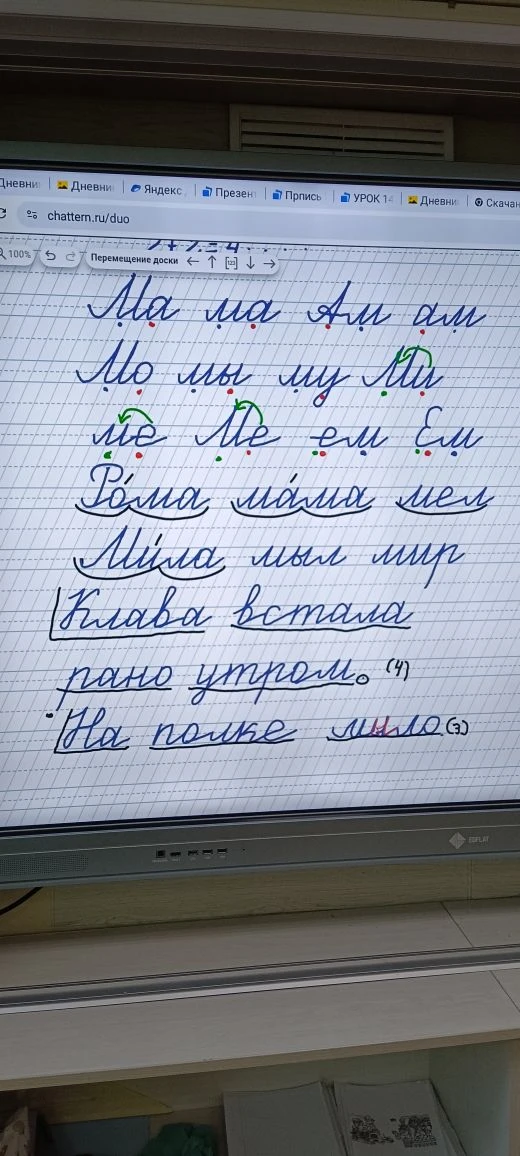 Дневни Дневни Яндекс Презен Прпись УРОК 14 Дневни Скачан
chattern.ru/duo
100% Перемещение доски
Ма ма Ам ам
Мо мы му Ми
ме Ме ем Ем
Ро́ма ма́ма мел
Ми́ла мыл мир
Клава встала
рано утром. (4)
На полке мыло (3)
EDFLAT